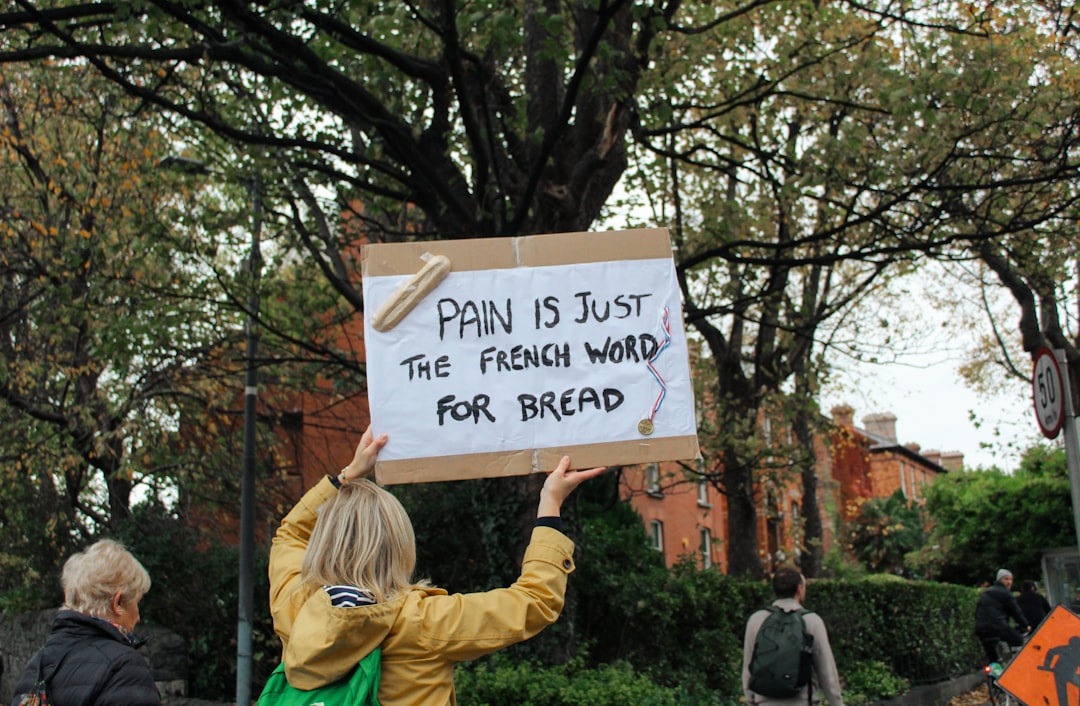 PAIN IS JUST
THE FRENCH WORD
FOR BREAD
50